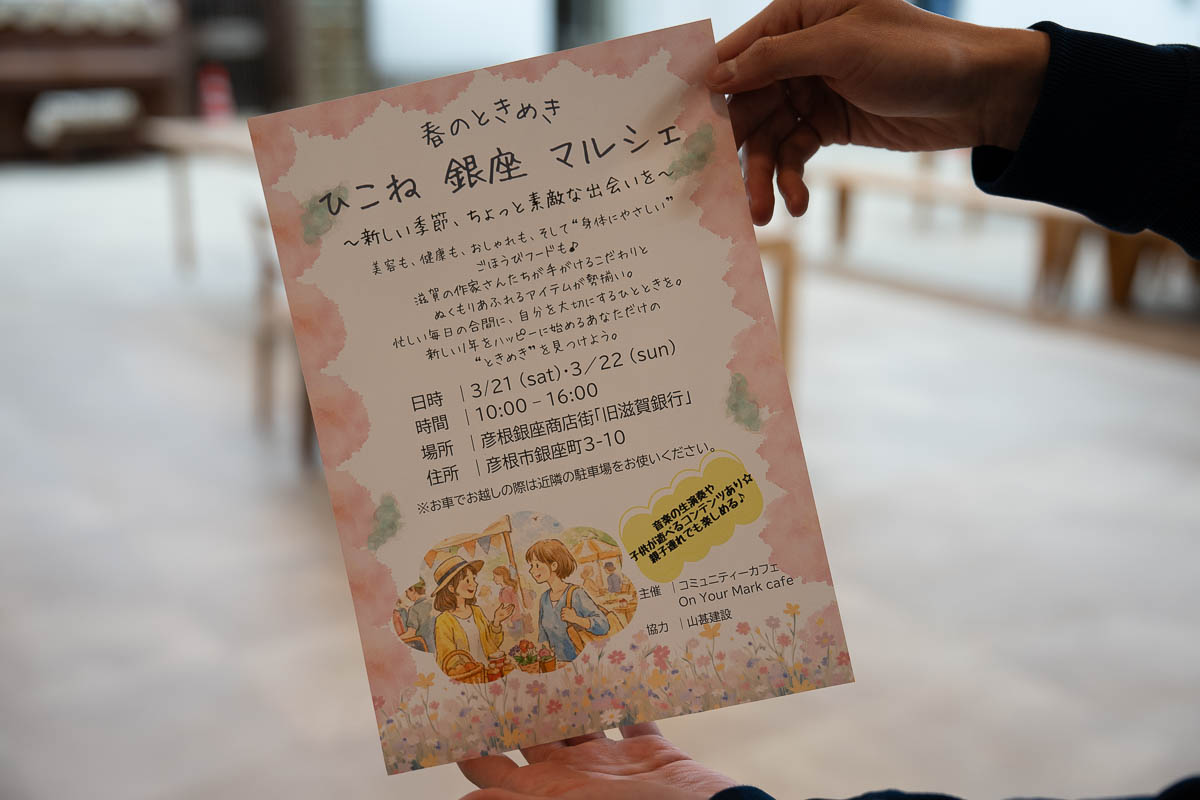 春のときめき
ひこね 銀座 マルシェ
~新しい季節、ちょっと素敵な出会いを~
美容も、健康も、おしゃれも、そして“身体にやさしい”
ごほうびフードも♪
滋賀の作家さんたちが手がけるこだわりと
ぬくもりあふれるアイテムが勢揃い。
忙しい毎日の合間に、自分を大切にするひとときを。
新しい1年をハッピーに始めるあなただけの
“ときめき”を見つけよう。
日時 | 3/21 (sat)・3/22 (sun)
時間 | 10:00 - 16:00
場所 | 彦根銀座商店街「旧滋賀銀行」
住所 | 彦根市銀座町3-10
※お車でお越しの際は近隣の駐車場をお使いください。
音楽の生演奏や
子供が遊べるコンテンツあり☆
親子連れでも楽しめる♪
主催 | コミュニティーカフェ
On Your Mark cafe
協力 | 山甚建設